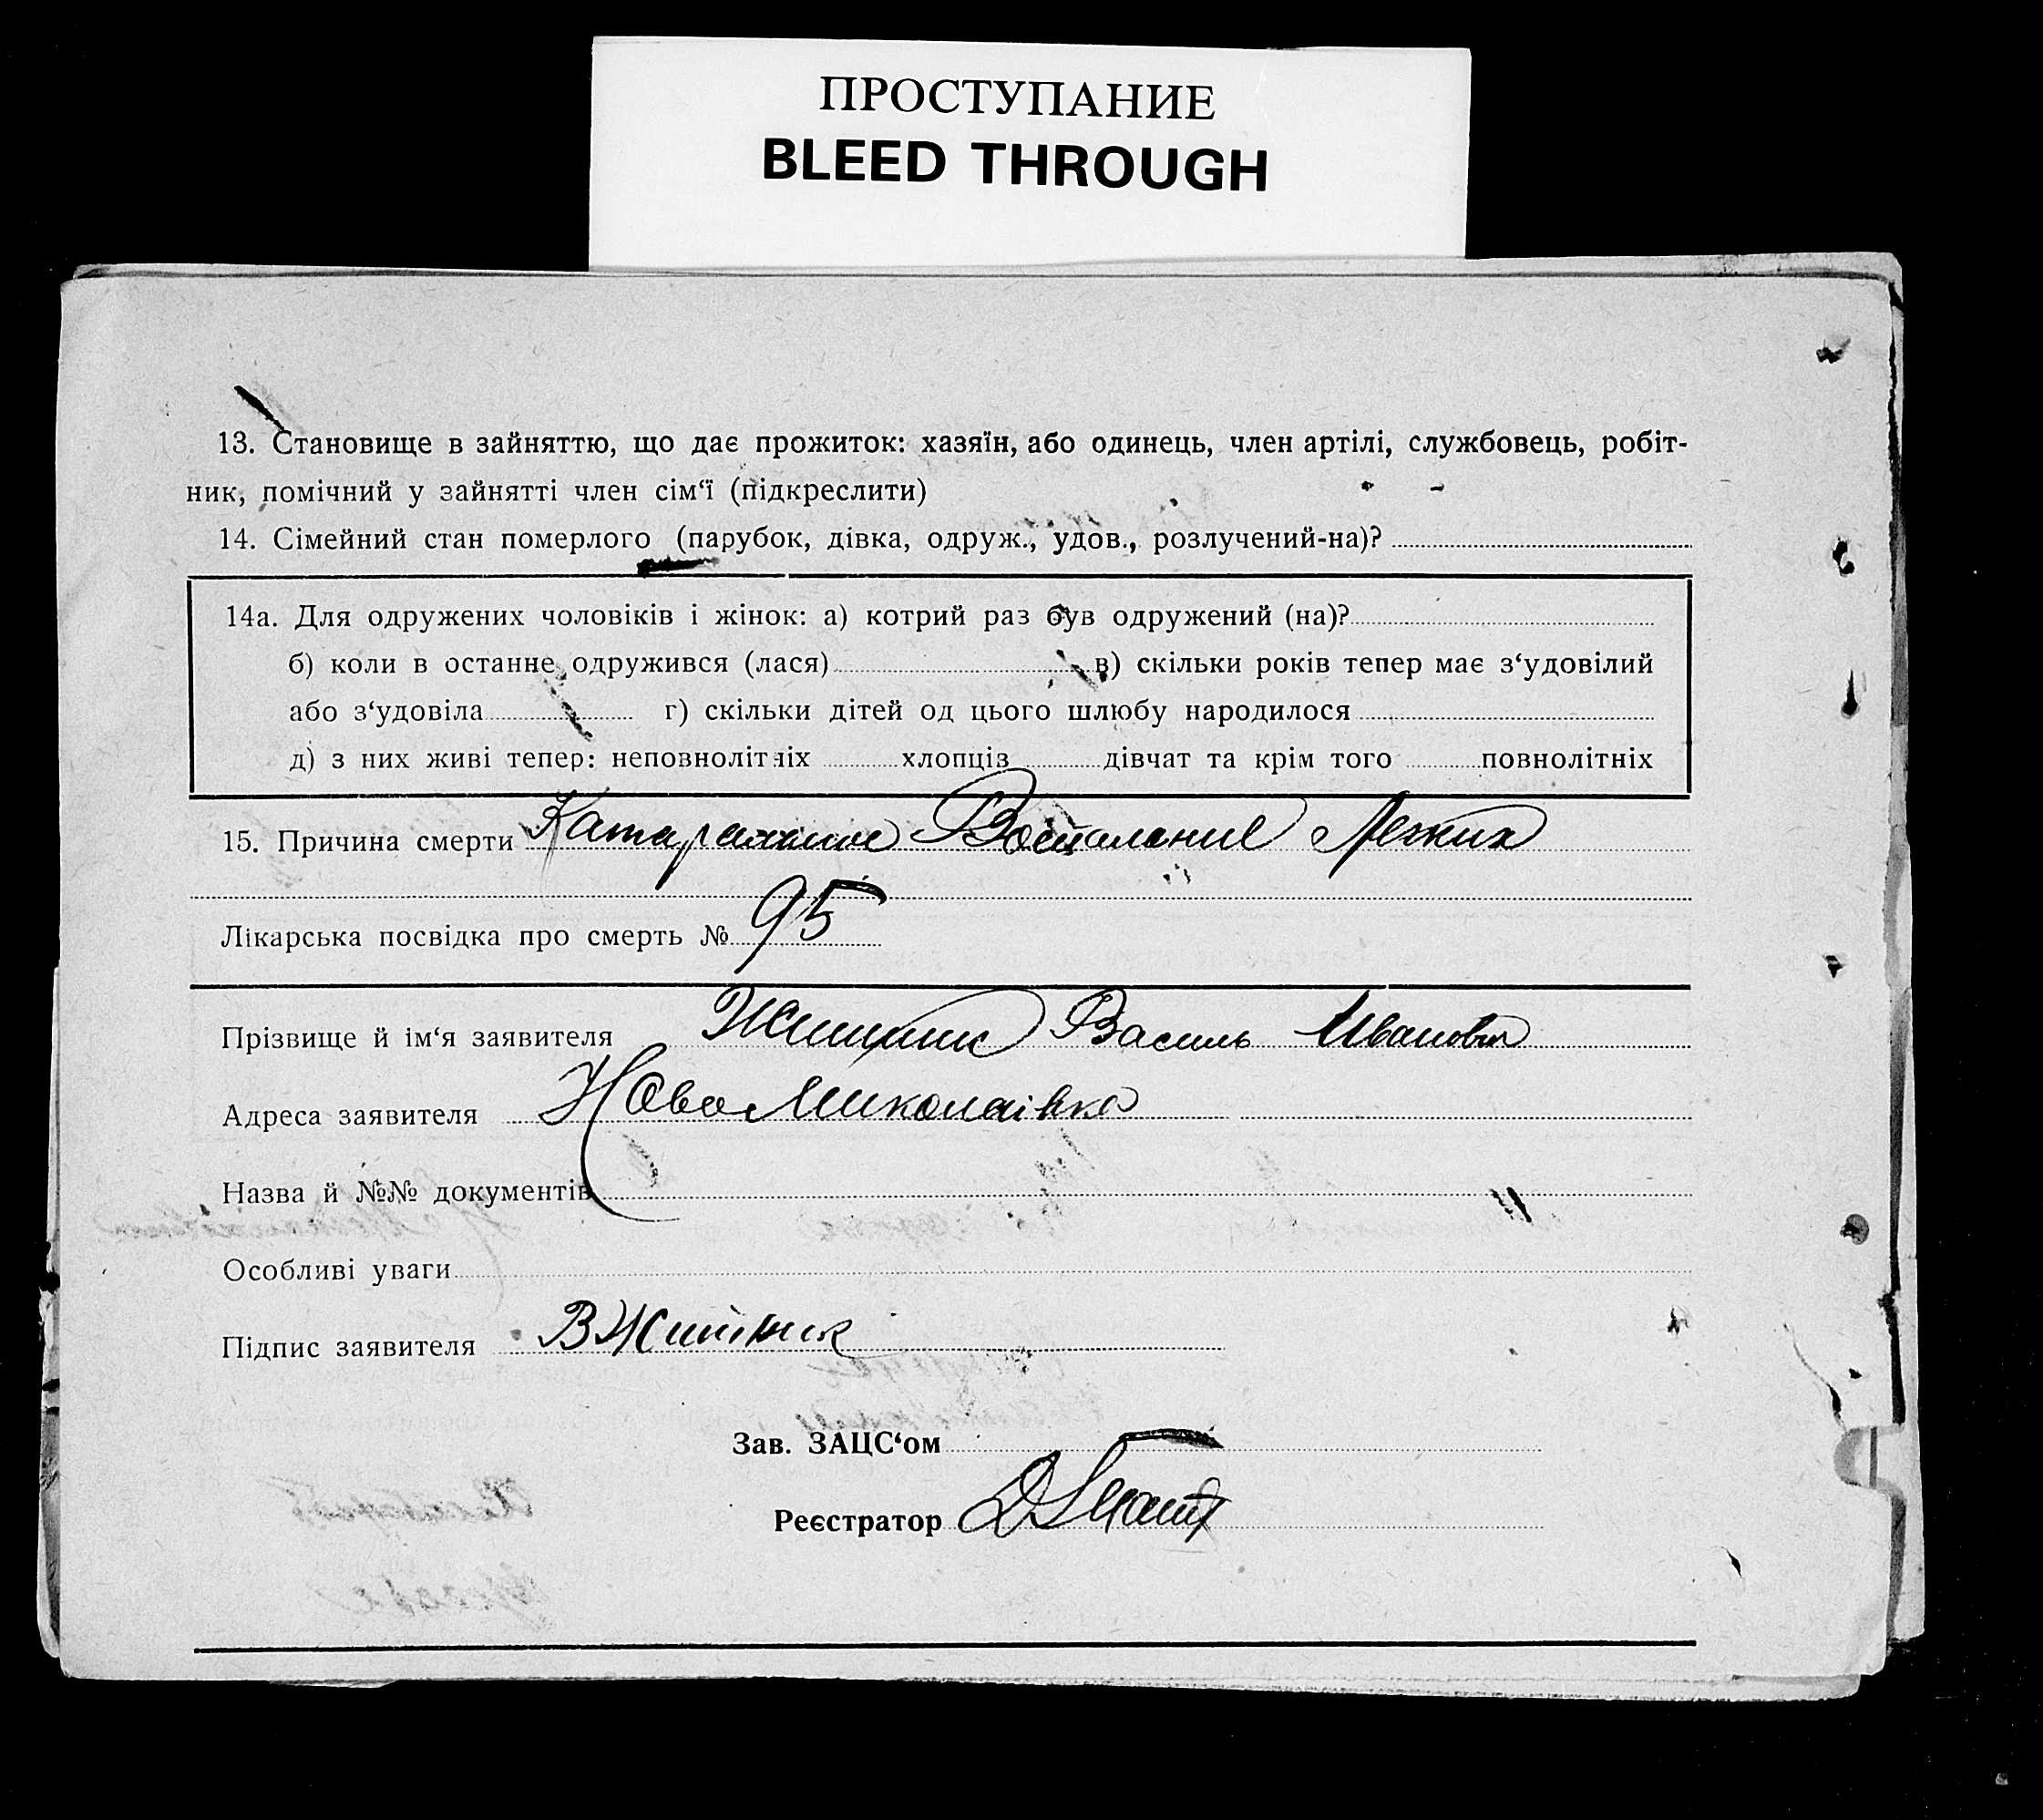 ПРОСТУПАНИЕ
BLEED THROUGH
13. Становище в зайняттю, що дає прожиток: хазяїн, або одинець, член артілі, службовець, робіт-
ник, помічний у зайнятті член сім‘ї (підкреслити)
14. Сімейний стан померлого (парубок, дівка, одруж., удов., розлучений-на)?
14а. Для одружених чоловіків і жінок: а) котрий раз був одружений (на)?
б) коли в останнє одружився (лася) в) скільки років тепер має з‘удовілий
або з‘удовіла г) скільки дітей од цього шлюбу народилося
д) з них живі тепер: неповнолітніх хлопців дівчат та крім того повнолітніх
15. Причина смерти Катаральное Воспаление Легких
Лікарська посвідка про смерть № 95
Прізвище й ім‘я заявителя Василь
Адреса заявителя Ново Миколаівка
Назва й №№ документів
Особливі уваги
Підпис заявителя
Зав. ЗАЦС‘ом
Реєстратор